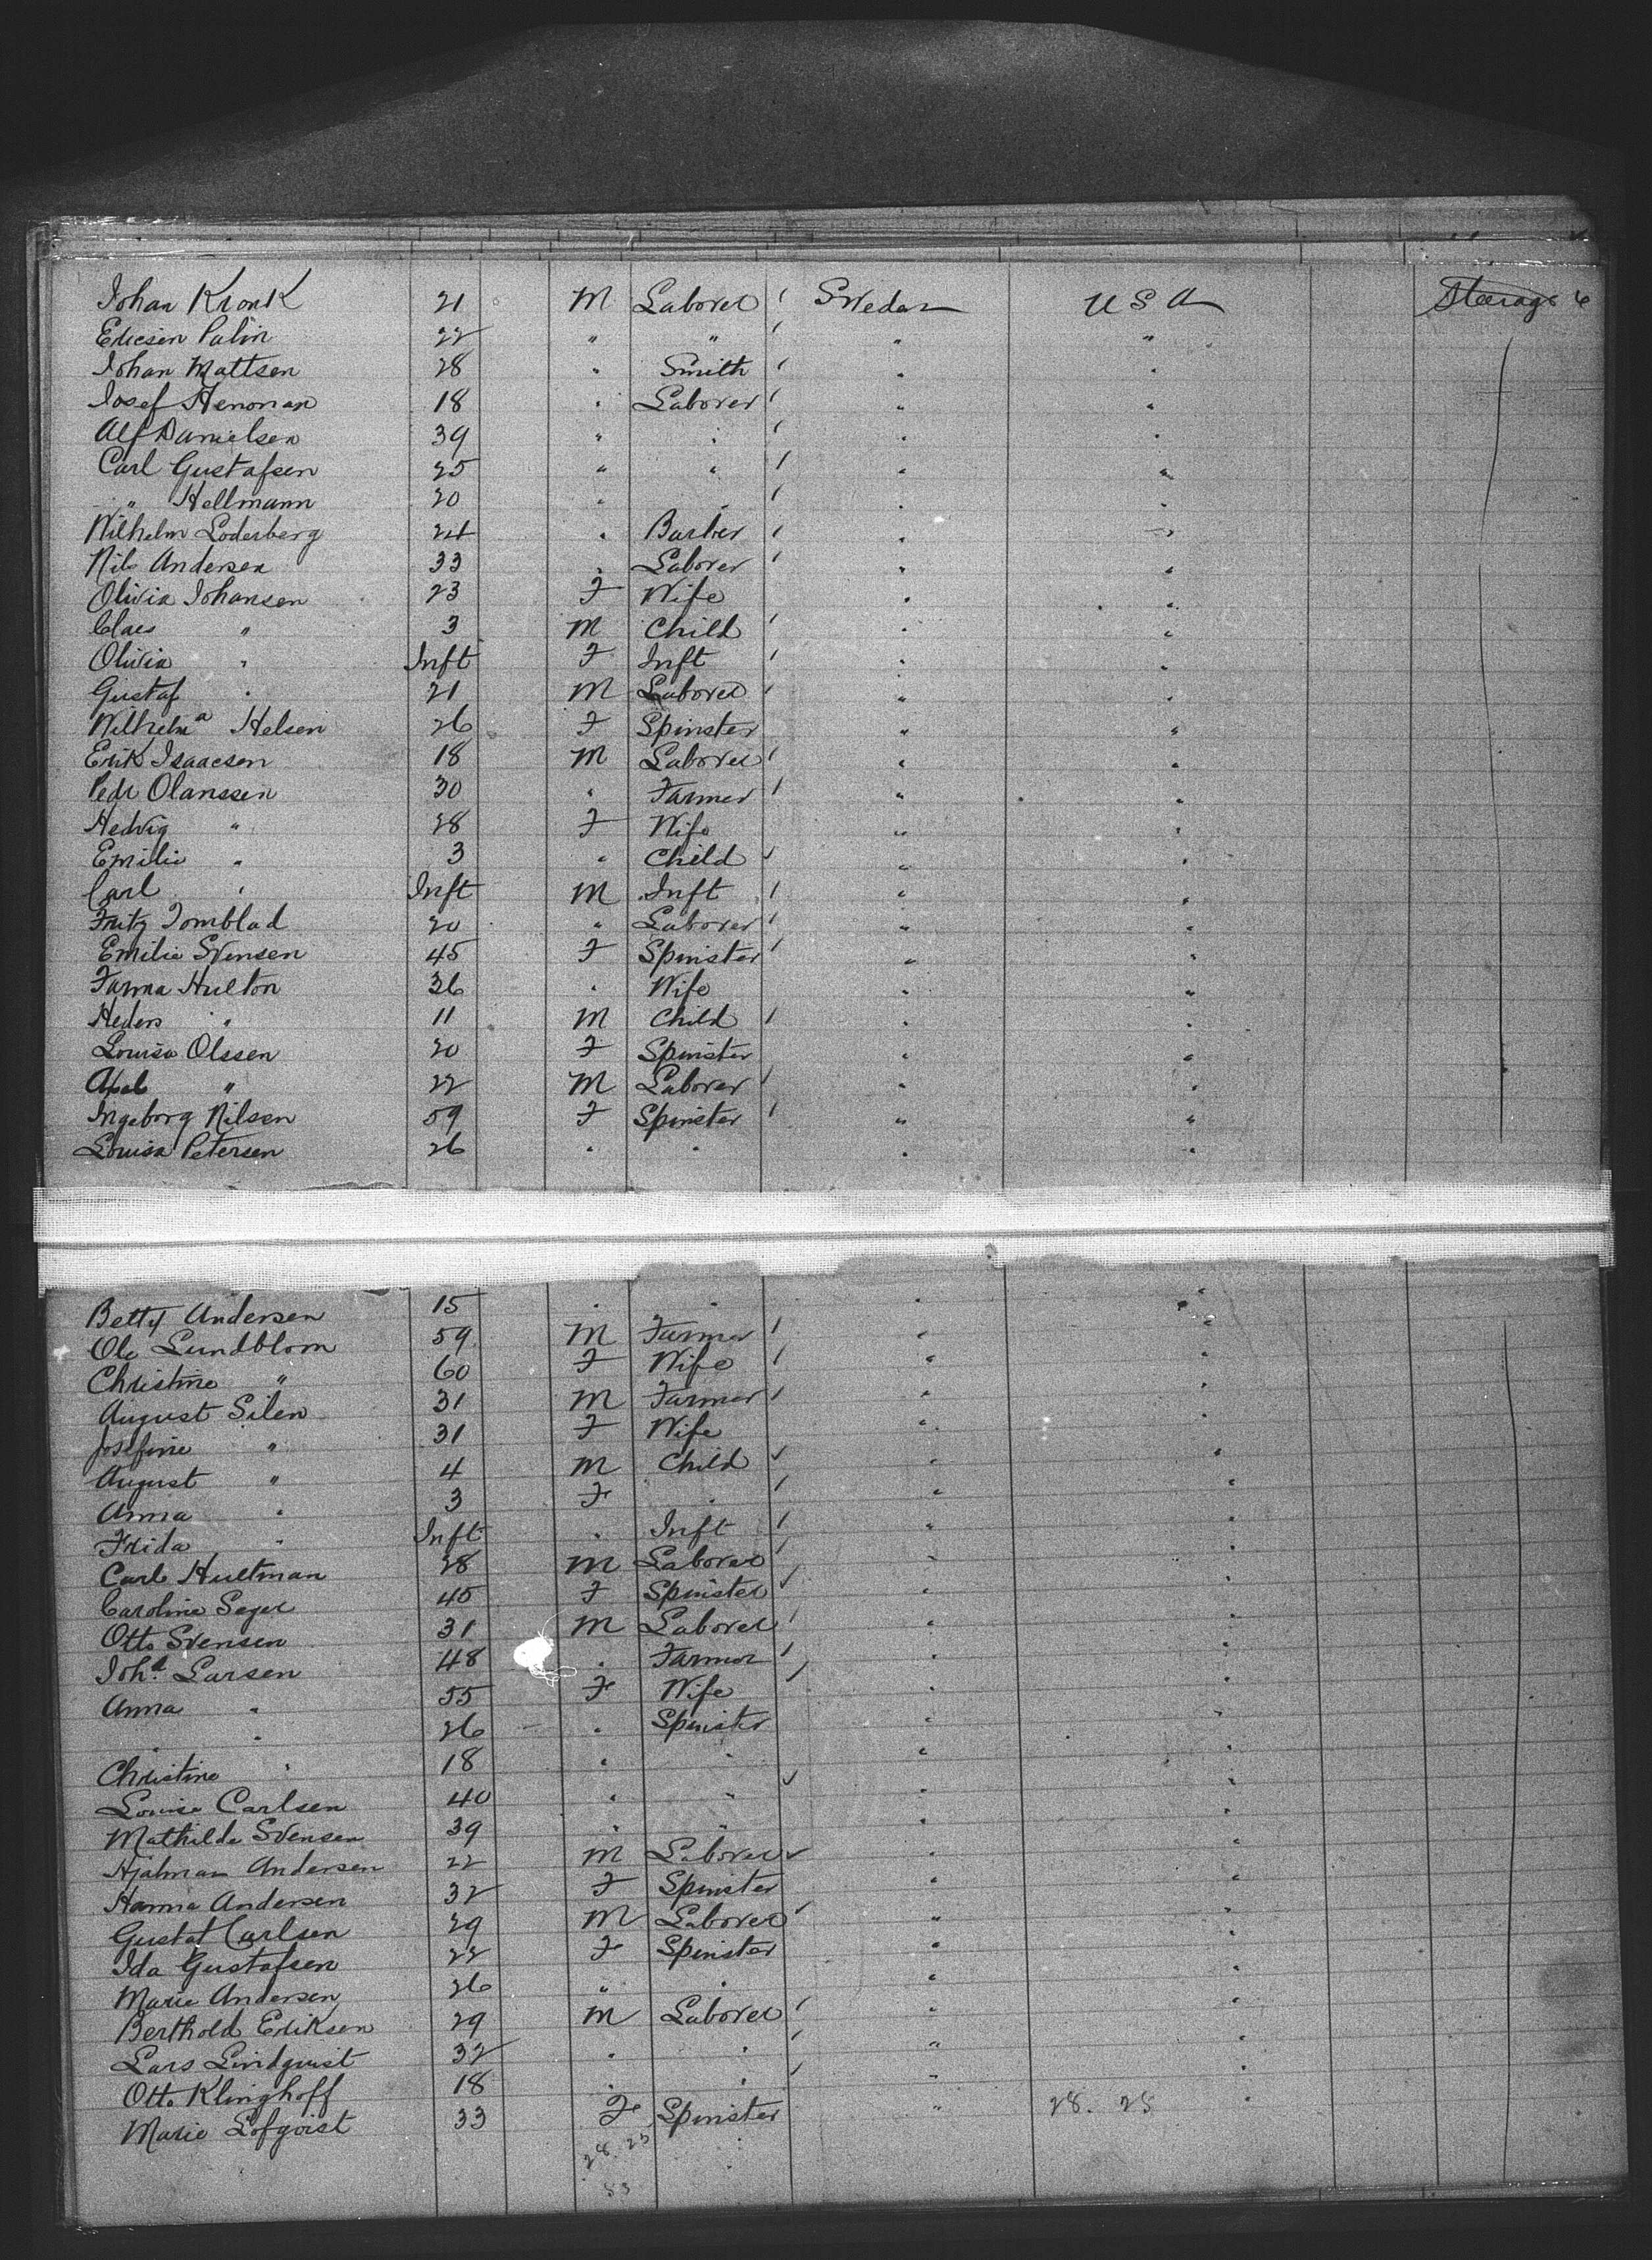 Johan Kronk 21 M Laborer / Sweden U S A Steerage
Ericsen Palin 22 " " / " "
Johan Mattsen 28 " Smith / " "
Josef Henonan 18 " Laborer / " "
Alf Danielsen 39 " " / " "
Carl Gustafsen 25 " " / " "
" Hellmann 20 " " / " "
Wilhelm Loderberg 24 " Barber / " "
Nils Andersen 33 " Laborer / " "
Olivia Johansen 23 F Wife " "
Claes " 3 M Child / " "
Olivia " Inft F Inft / " "
Gustaf " 21 M Laborer / " "
Wilhelma Helsen 26 F Spinster " "
Erik Isaacsen 18 M Laborer / " "
Pedr Olanssen 30 " Farmer / " "
Hedvig " 28 F Wife " "
Emilie " 3 " Child ✓ " "
Carl " Inft M Inft / " "
Fritz Tomblad 20 " Laborer / " "
Emilie Svensen 45 F Spinster / " "
Fanna Hulton 36 " Wife " "
Heders " 11 M Child / " "
Louisa Olssen 20 F Spinster " "
Axel " 22 M Laborer / " "
Ingeborg Nilsen 59 F Spinster / " "
Louisa Petersen 26 " " " "
Betty Andersen 15 " " " "
Ole Lundblom 59 M Farmer / " "
Christine " 60 F Wife / " "
August Silen 31 M Farmer / " "
Josefine " 31 F Wife " "
August " 4 M Child ✓ " "
Anna " 3 F " / " "
Frida " Inft " Inft / " "
Carl Hultman 28 M Laborer / " "
Caroline Seger 45 F Spinster ✓ " "
Otto Svensen 31 M Laborer / " "
Johs Larsen 48 " Farmer / " "
Anna " 55 F Wife / " "
" " 26 " Spinster " "
Christine " 18 " " " "
Louise Carlsen 40 " " ✓ " "
Mathilde Svensen 39 " " " "
Hjalmar Andersen 22 M Laborer ✓ " "
Hanna Andersen 32 F Spinster " "
Gustaf Carlsen 29 M Laborer / " "
Ida Gustafsen 22 F Spinster " "
Marie Andersen 26 " " " "
Berthold Eriksen 29 M Laborer / " "
Lars Lindquist 32 " " / " "
Otto Klinghoff 18 " " / " "
Marie Lofqvist 33 F Spinster " 28. 25 "
28. 25
53